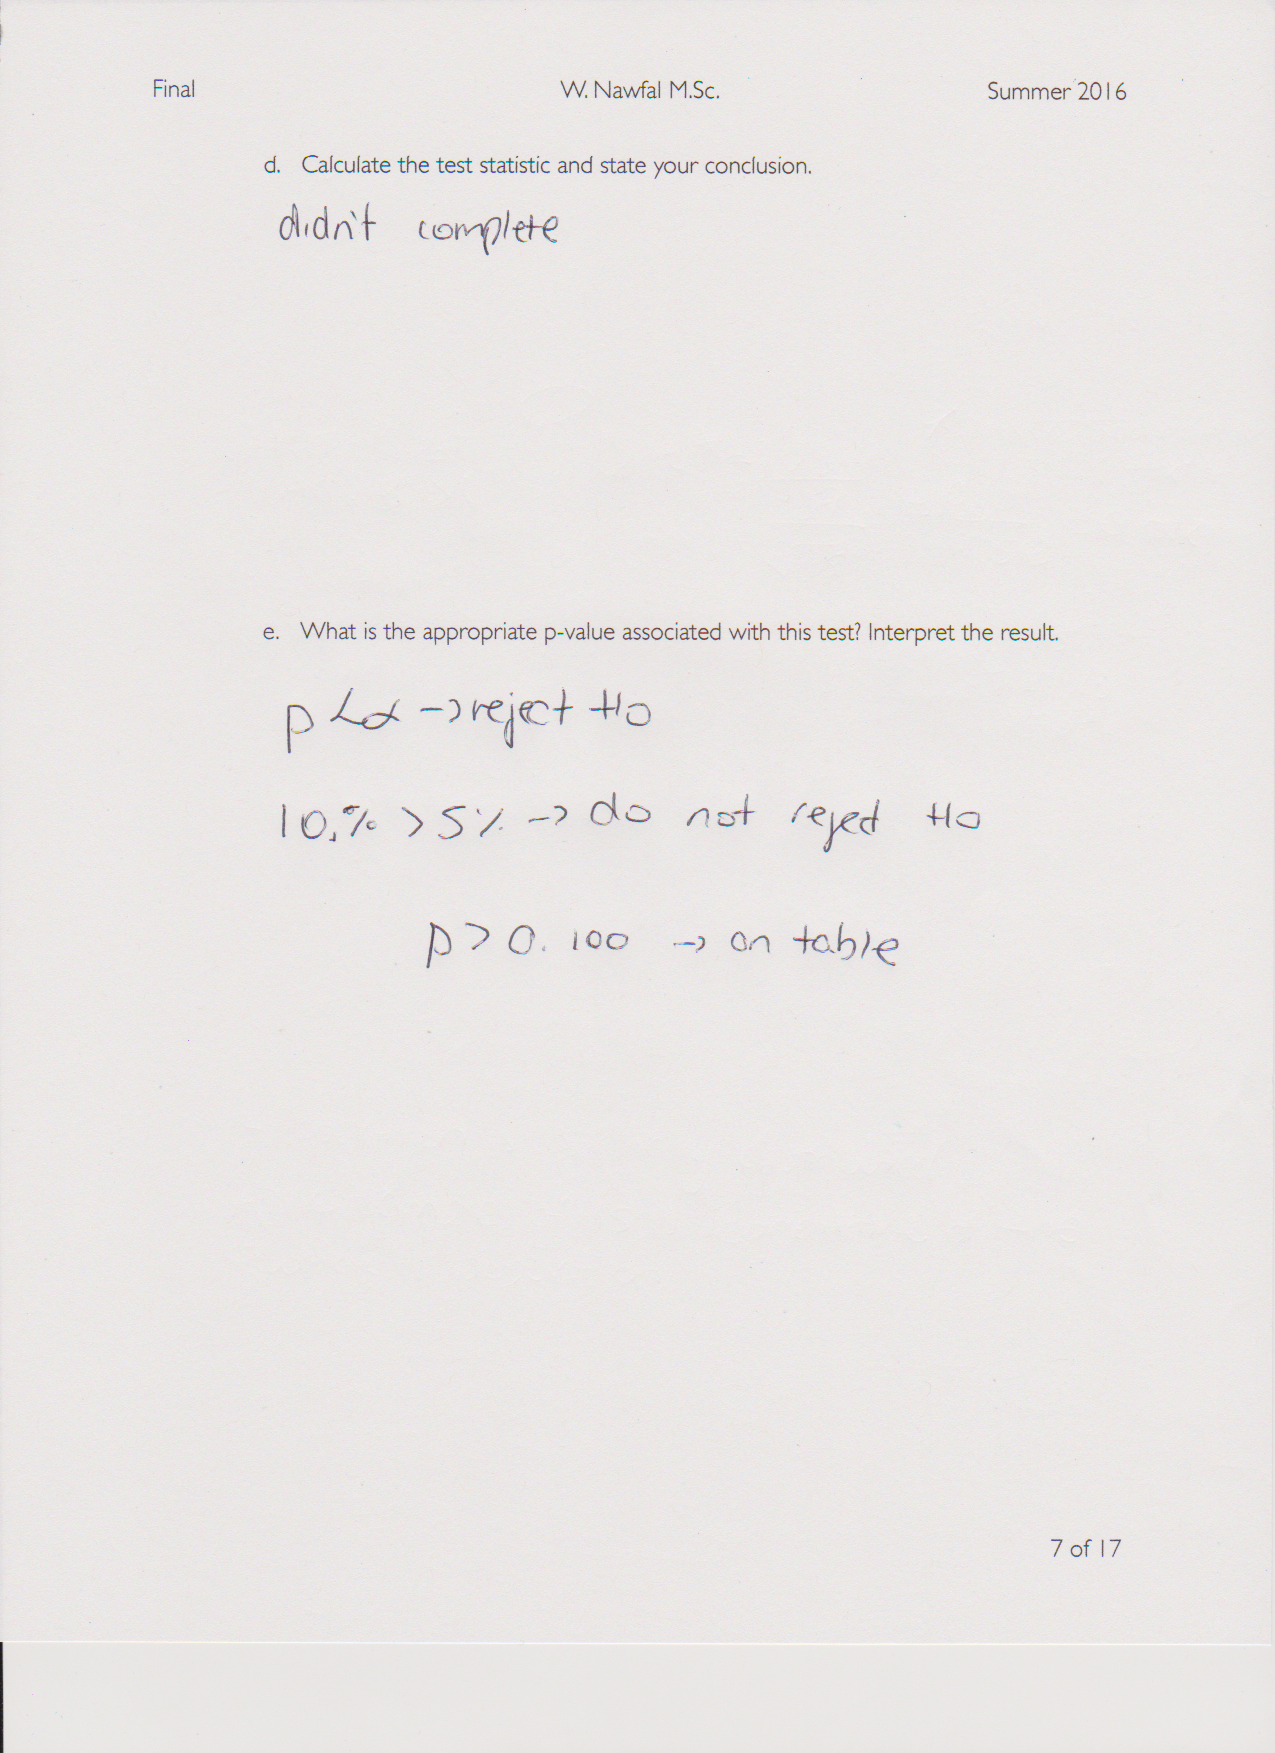 Final W. Nawfal M.Sc. Summer 2016
d. Calculate the test statistic and state your conclusion.
didn't complete
e. What is the appropriate p-value associated with this test? Interpret the result.
p < α → reject Ho
10.% > 5% → do not reject Ho
p > 0.100 → on table
7 of 17